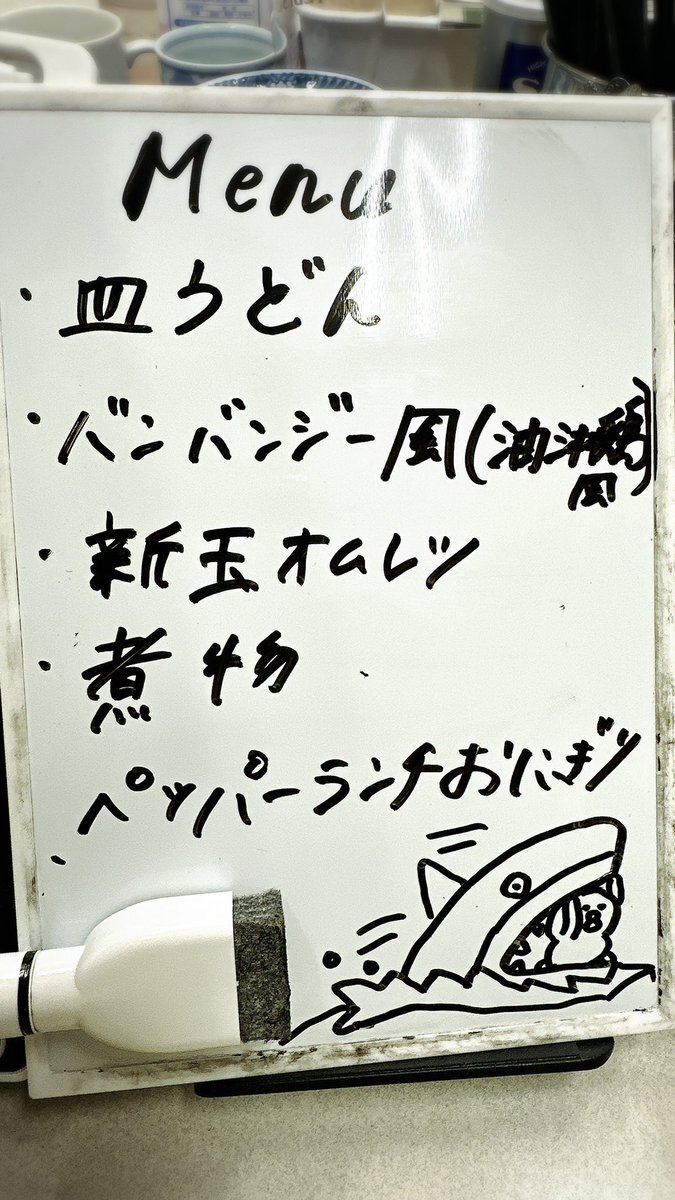 Menu
・皿うどん
・バンバンジー風(油淋鶏風)
・新玉オムレツ
・煮物
・ペッパーランチおにぎり